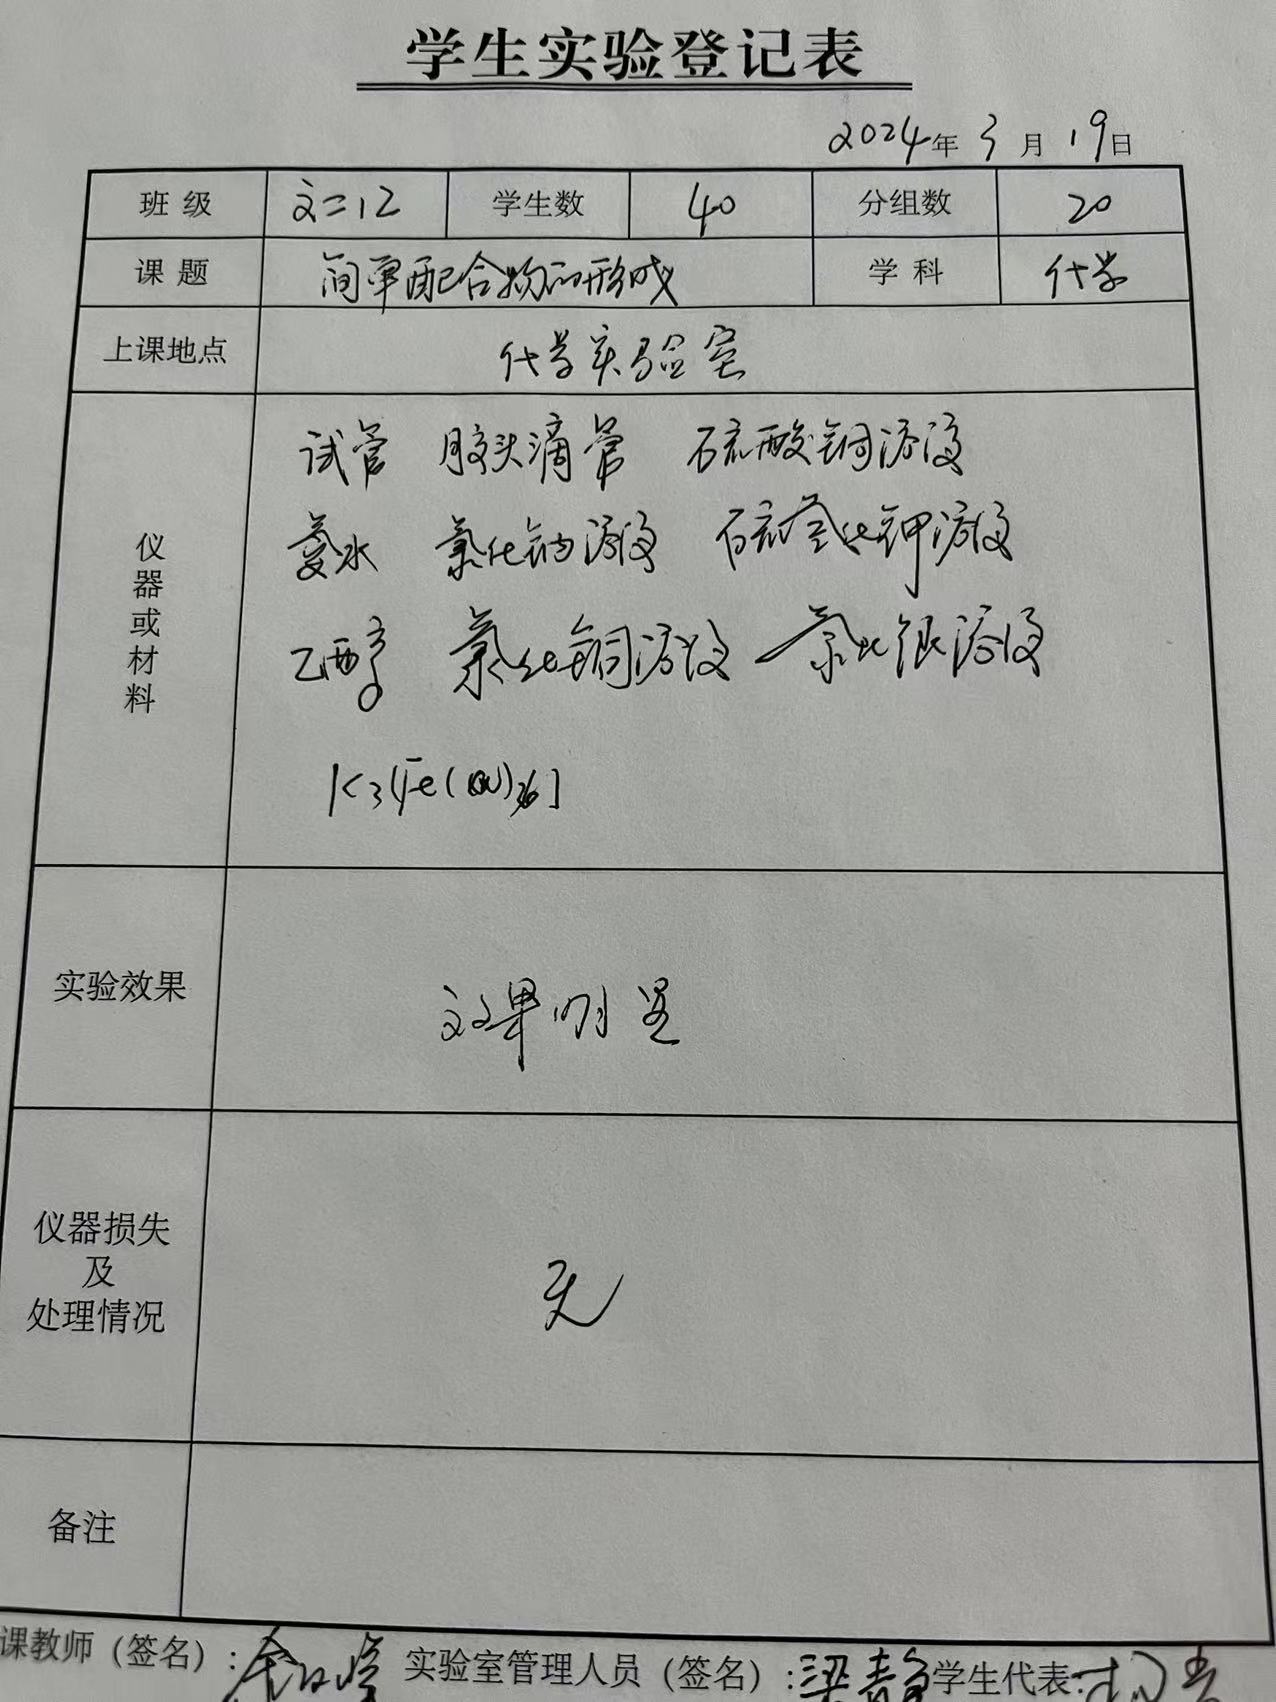 学生实验登记表
2024年3月19日
班级 文二12 学生数 40 分组数 20
课题 简单配合物的形成 学科 化学
上课地点 化学实验室
仪器或材料
试管 胶头滴管 硫酸铜溶液
氨水 氯化钠溶液 硫氰化钾溶液
乙醇 氯化铜溶液 氯化银溶液
K3[Fe(CN)6]
实验效果 效果明显
仪器损失
及
处理情况
无
备注
课教师（签名）: 实验室管理人员（签名）:梁静 学生代表: